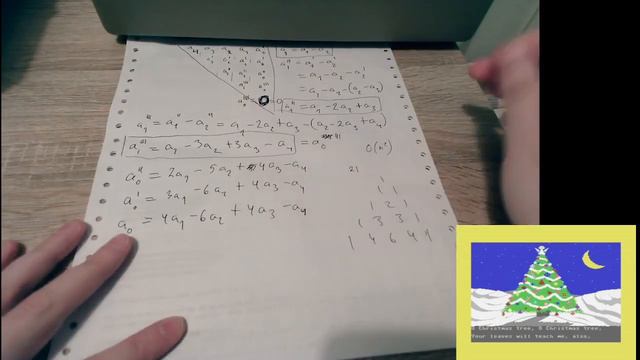 a₁''' = a₁'' - a₂'' = a₁ - 2a₂ + a₃ - (a₂ - 2a₃ + a₄)
a₁''' = a₁ - 3a₂ + 3a₃ - a₄ = a₀'''
a₀'' = 2a₁ - 5a₂ + 4a₃ - a₄
a₀' = 3a₁ - 6a₂ + 4a₃ - a₄
a₀ = 4a₁ - 6a₂ + 4a₃ - a₄
= a₁ - a₂ - a₂'
= a₁ - a₂ - (a₂ - a₃)
a₁'' = a₁ - 2a₂ + a₃
O(n²)
21
1
1 1
1 2 1
1 3 3 1
1 4 6 4 1
O Christmas tree, O Christmas tree,
Your leaves will teach me, also,